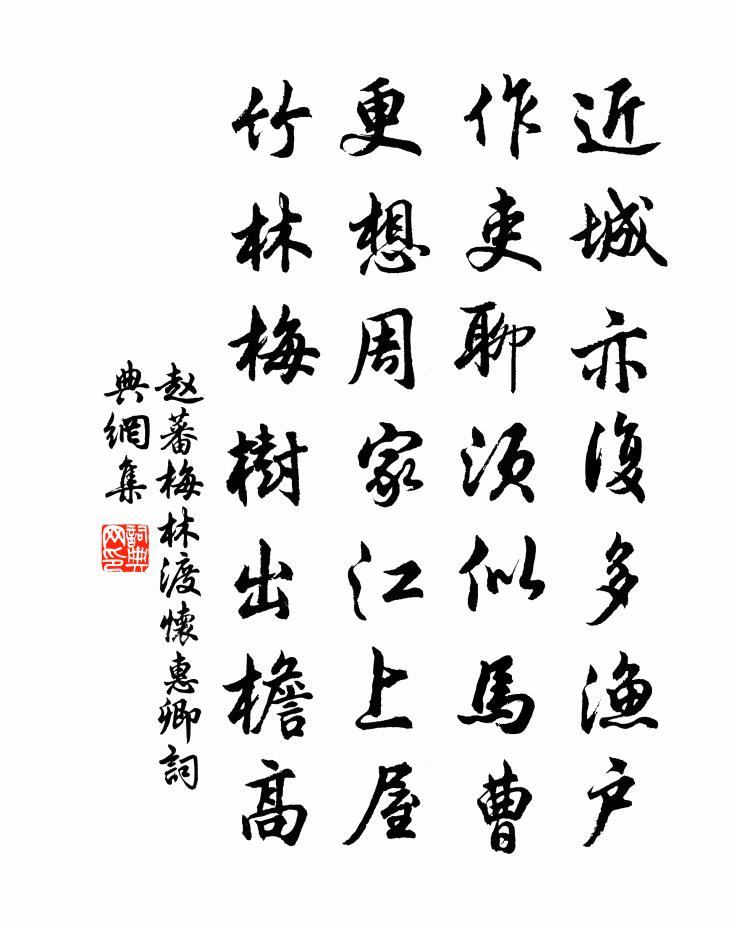 近城亦復多漁户
作吏聊須似馬曹
更想周家江上屋
竹林梅樹出檐高
赵蕃梅林渡懷惠卿詞
典網集
詞典
网印